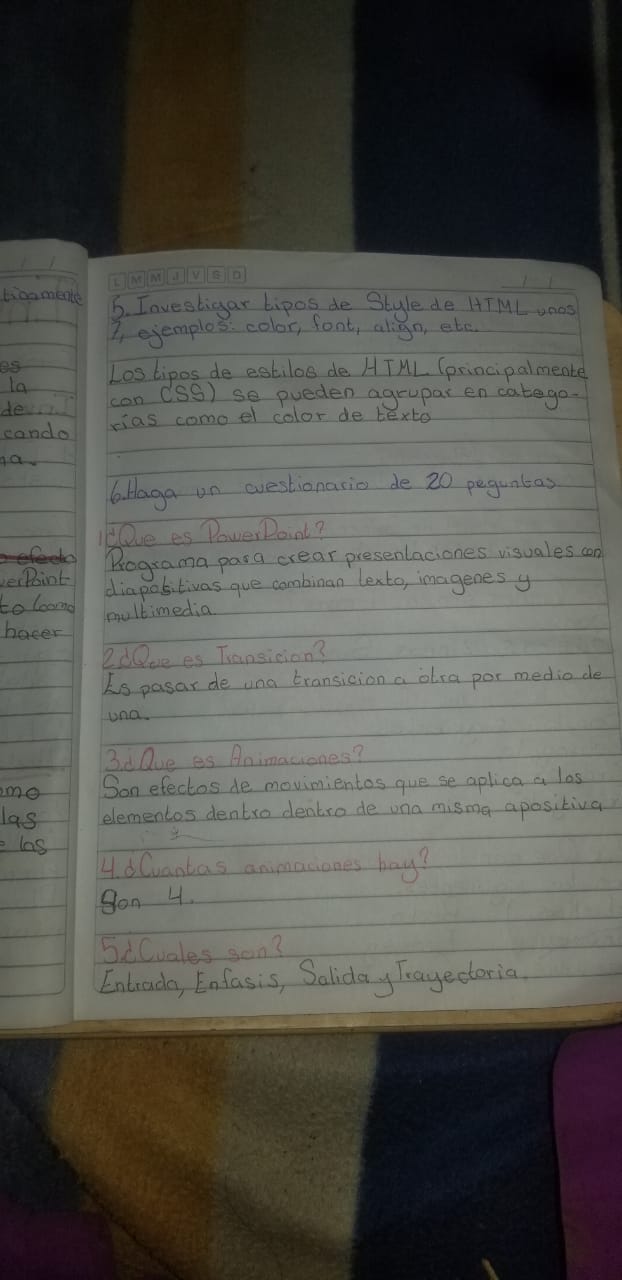 L M M J V S D
ticamente
es
la
de
cando
na.
efecto
werPoint
to (como
hacer
omo
las
e las
5. Investigar tipos de Style de HTML unos
7, ejemplos: color, font, align, etc.
Los tipos de estilos de HTML (principalmente
con CSS) se pueden agrupar en catego-
rias como el color de texto
6. Haga un cuestionario de 20 peguntas
1¿Que es PowerPoint?
Programa para crear presentaciones visuales con
diapositivas que combinan texto, imagenes y
multimedia.
2¿Que es Transicion?
Es pasar de una transicion a otra por medio de
una.
3.¿Que es Animaciones?
Son efectos de movimientos que se aplica a los
elementos dentro dentro de una misma apositiva
4.¿Cuantas animaciones hay?
Son 4.
5.¿Cuales son?
Entrada, Enfasis, Salida y Trayectoria